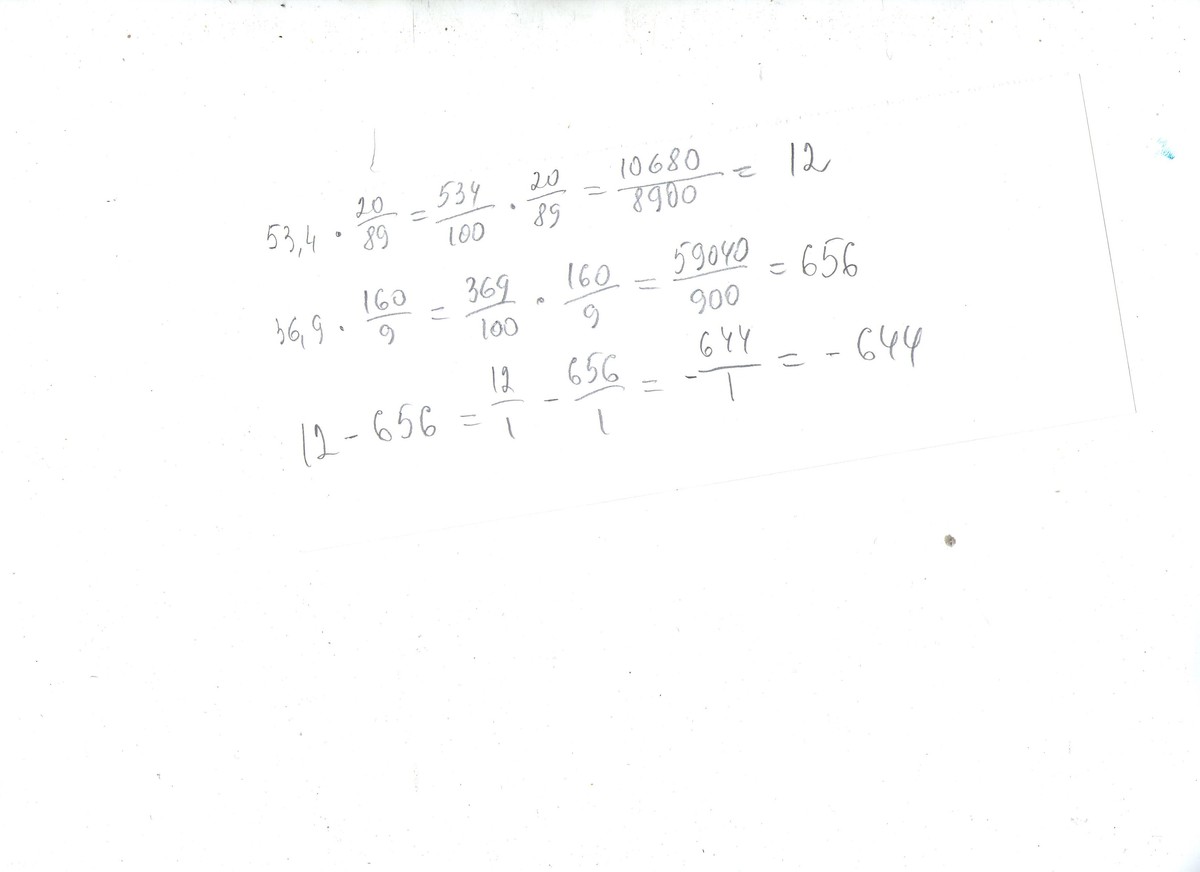 53,4 · 20/89 = 534/100 · 20/89 = 10680/8900 = 12
36,9 · 160/9 = 369/100 · 160/9 = 59040/900 = 656
12 - 656 = 12/1 - 656/1 = - 644/1 = - 644